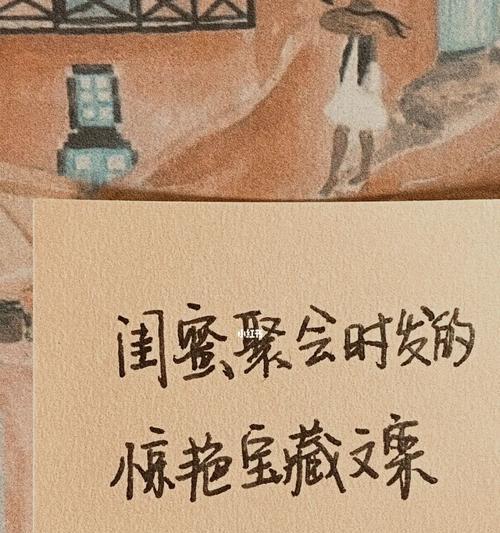 闺蜜聚会时发的
小红书
惊艳宝藏文案